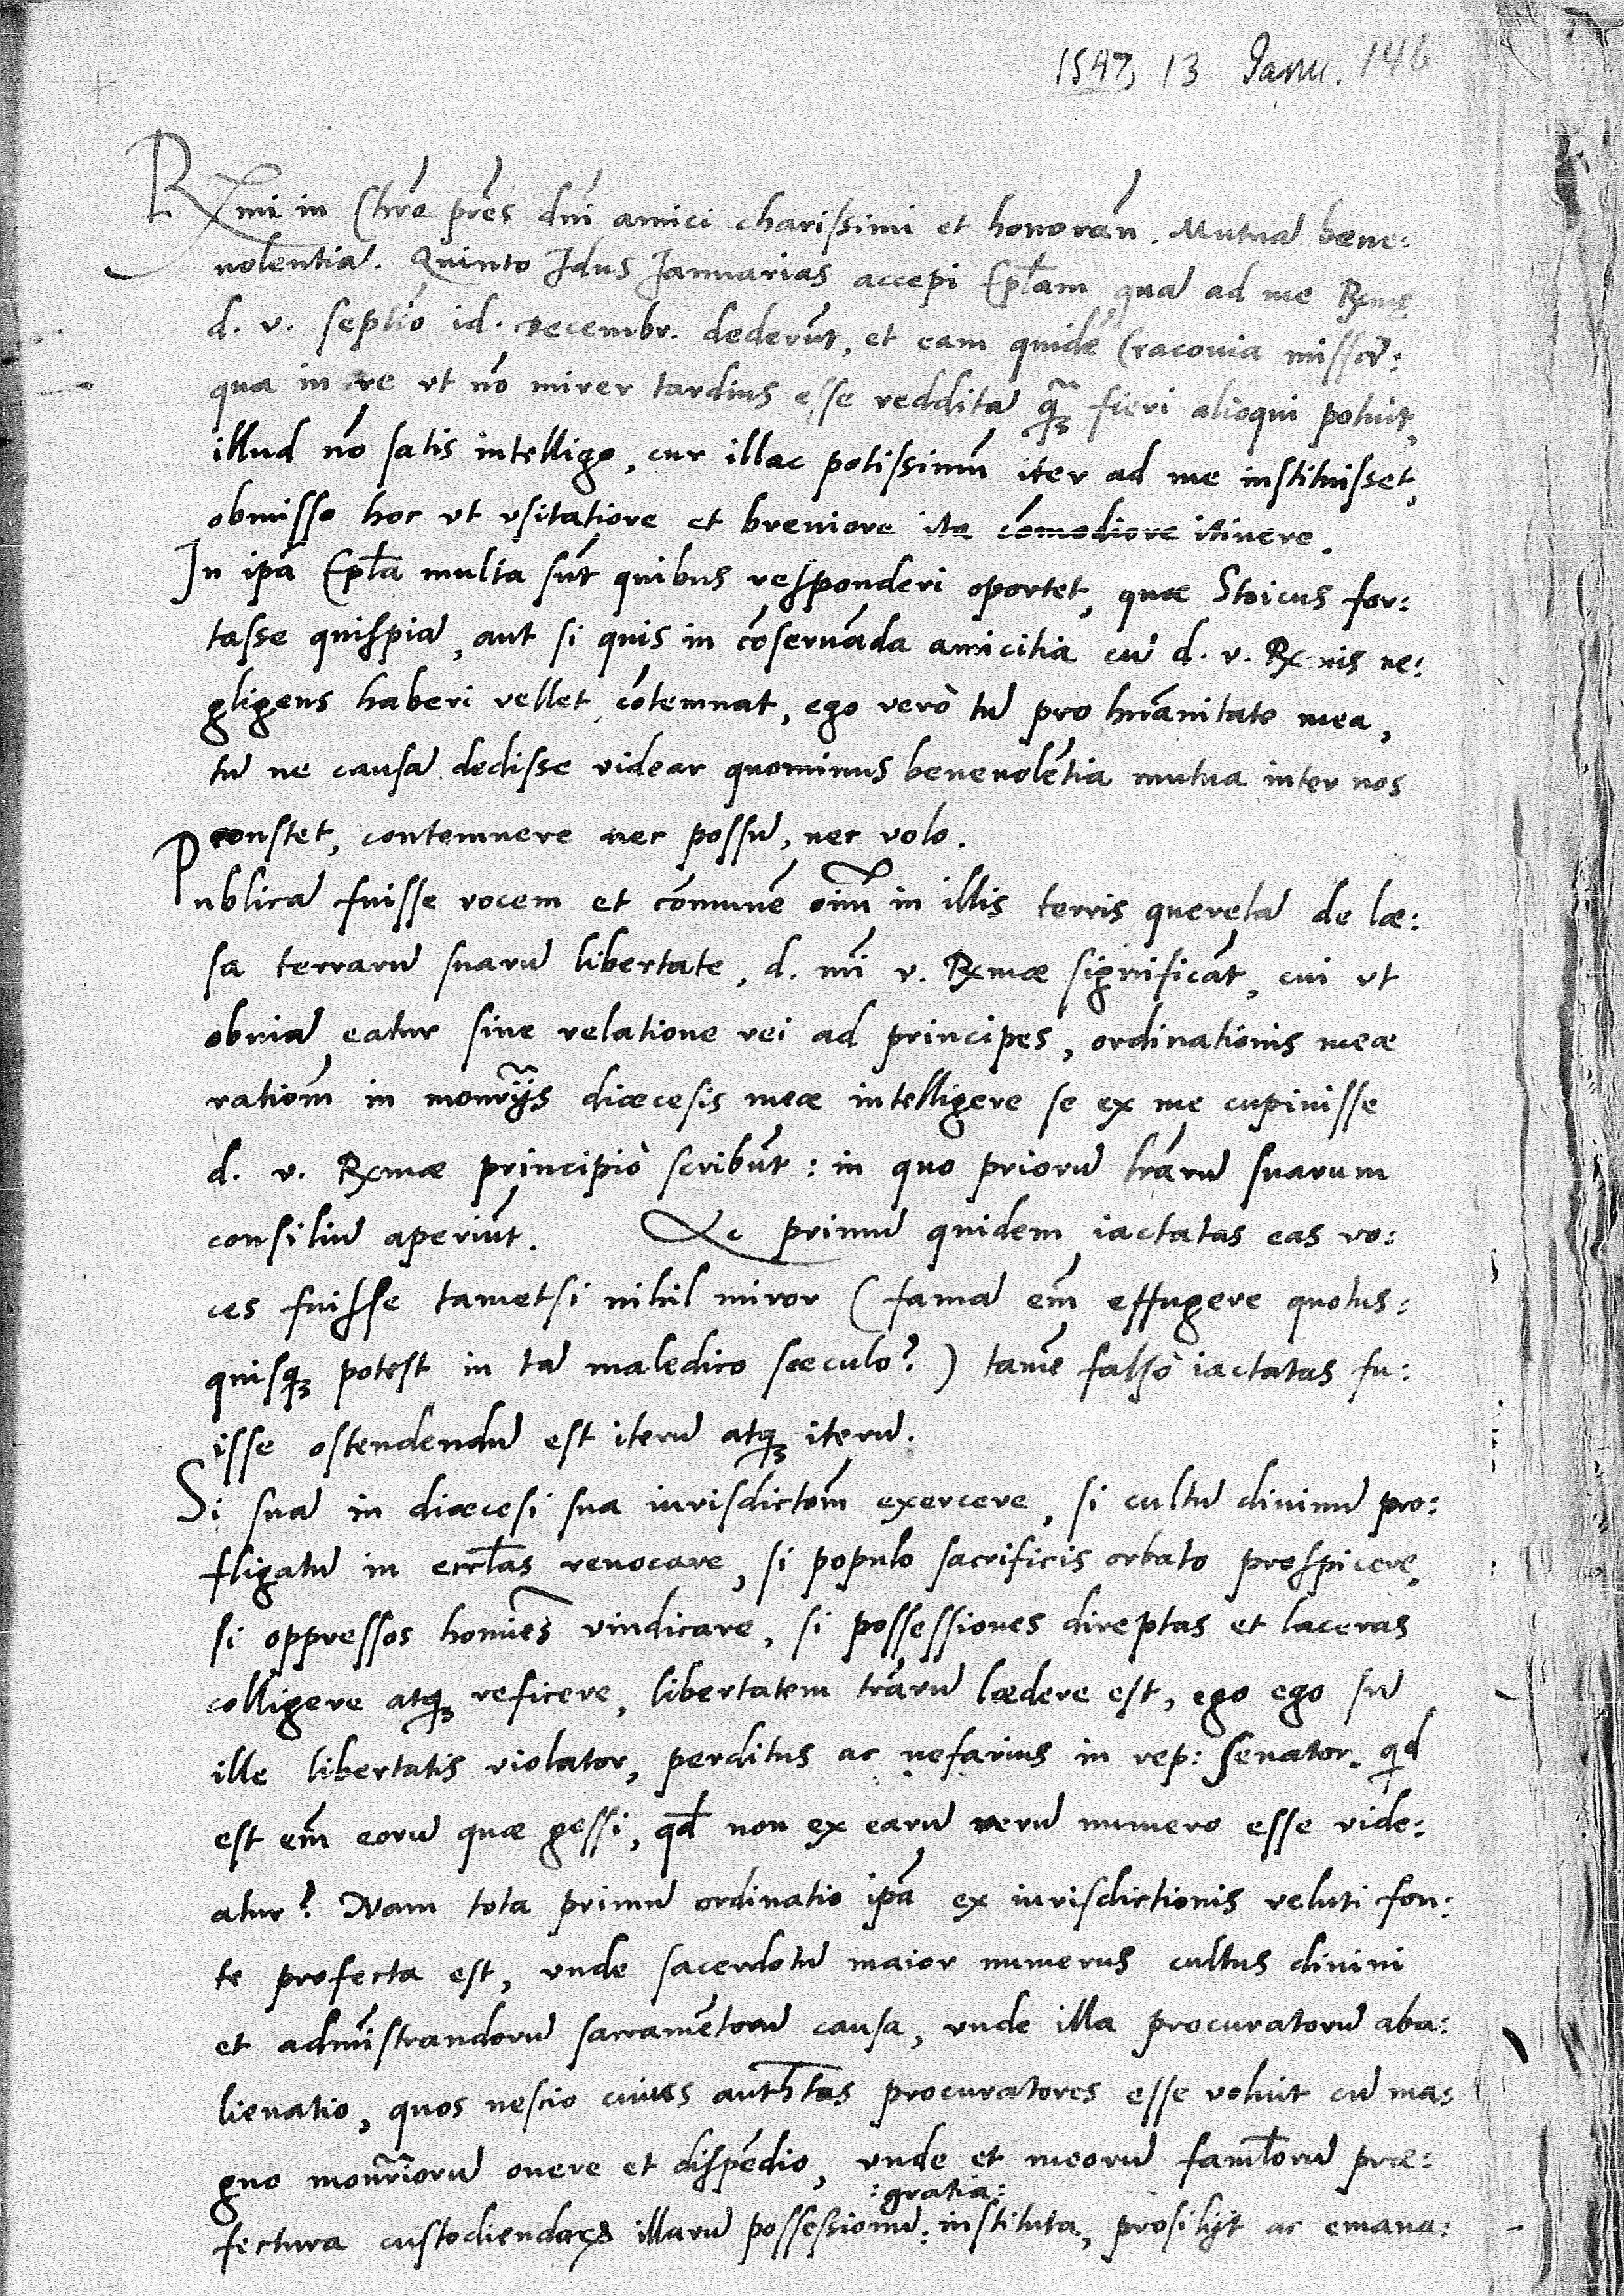 1547, 13 Janu. 146
Rx͠mi in Chrō prēs dn̄i amici charissimi et honoran̄. Mutuā bene:
uolentiā. Quinto Idus Januarias accepi Ep̄lam, quā ad me Rxmę
d. v. septīo id. decembr. dederūt, et eam quidē Cracouia missā:
qua in re vt nō mirer tardius esse redditā q̃ꝫ fieri alioqui potuit,
illud nō satis intelligo, cur illac potissimū iter ad me instituisset,
obmisso hoc vt vsitatiore et breuiore ita cōmodiore itinere.
In ip̄a Ep̄la multa sūt quibus responderi oportet, quæ Stoicus for:
tasse quispiā, aut si quis in cōseruāda amicitia cū d. v. Rxmis ne:
gligens haberi vellet, cōtemnat, ego verò tū pro hūanitate mea,
tū ne causā dedisse videar quominus beneuolētia mutua inter nos
constet, contemnere nec possū, nec volo.
Publicā fuisse vocem et cōmunē oīm̄ in illis terris querelā de læ:
sa terrarū suarū libertate, d. mī v. Rxmæ significāt, cui vt
obuiā eatur siue relatione rei ad principes, ordinationis meæ
rationē in monr̄ijs diœcesis meæ intelligere se ex me cupiuisse
d. v. Rxmæ principiò scribūt: in quo priorū lr̄arū suarum
consiliū aperiūt. Ac primū quidem iactatas eas vo:
ces fuisse tametsi nihil miror (famā em̄ effugere quotus:
quisqꝫ potest in tā maledico sæculo?) tamē falsò iactatas fu:
isse ostendendū est iterū atqꝫ iterū.
Si suā in diœcesi sua iurisdictōm exercere, si cultū diuinū pro:
fligatū in eccl̄as reuocare, si populo sacrificis orbato prospicere,
si oppressos homīes vindicare, si possessiones direptas et laceras
colligere atqꝫ reficere, libertatem tr̄arū lædere est, ego ego sū
ille libertatis violator, perditus ac nefarius in rep: Senator. qđ
est em̄ eorū quæ gessi, qđ non ex earū rerū numero esse vide:
atur? Nam tota primū ordinatio ip̄a ex iurisdictionis veluti fon:
te profecta est, vnde sacerdotū maior numerus cultus diuini
et admīstrandorū sacramētorū causa, vnde illa procuratorū aba:
lienatio, quos nescio cuius auth̄tas procuratores esse voluit cū ma:
gno monr̄iorū onere et dispēdio, vnde et meorū famłorū præ:
:gratia:
fectura custodiendarū illarū possessionū. instituta, prosilijt ac emana: